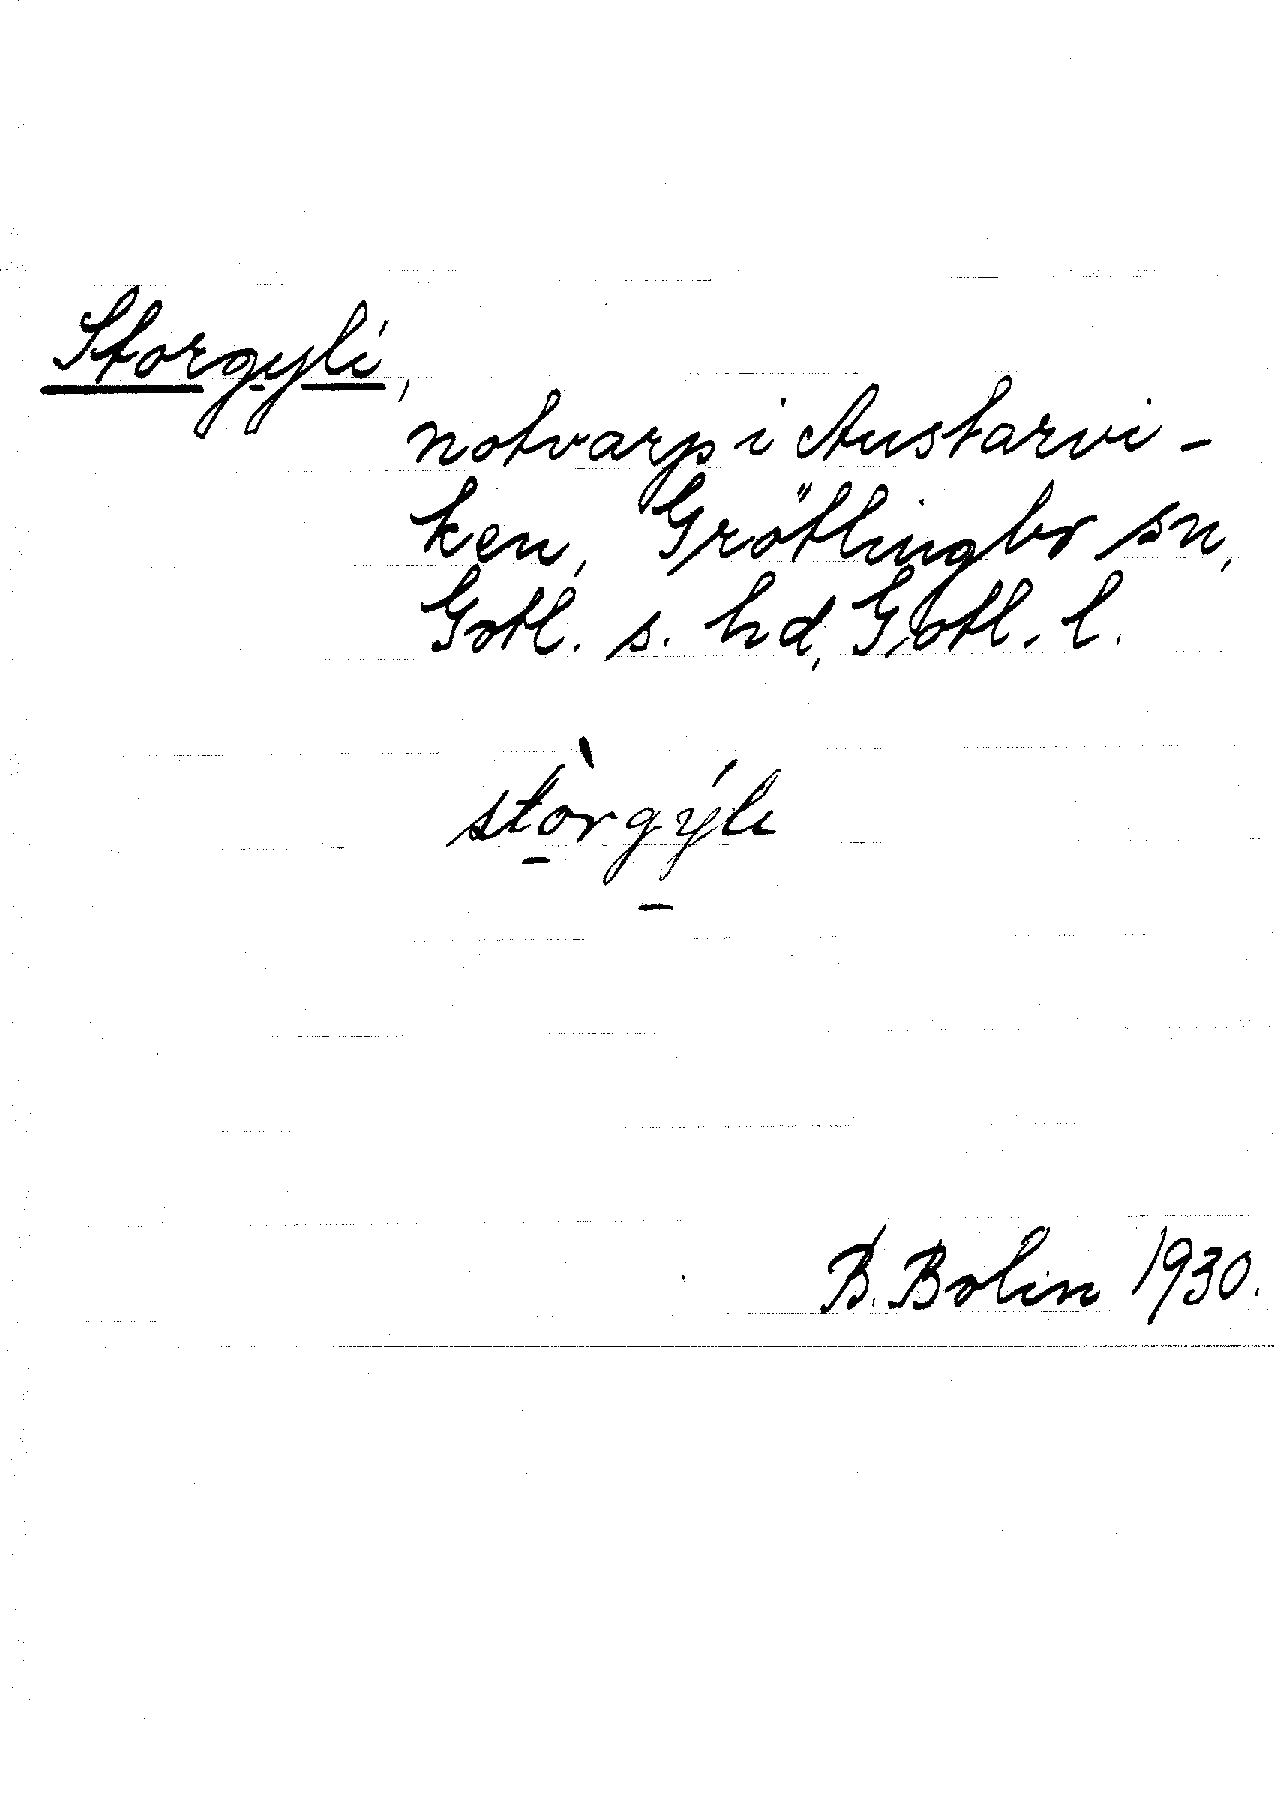 Storgyli,
notvarp i Austarvi-
ken, Grötlingbo sn,
Gotl. s. hd, Gotl. l.
stòrgýlı
B. Bolin 1930.